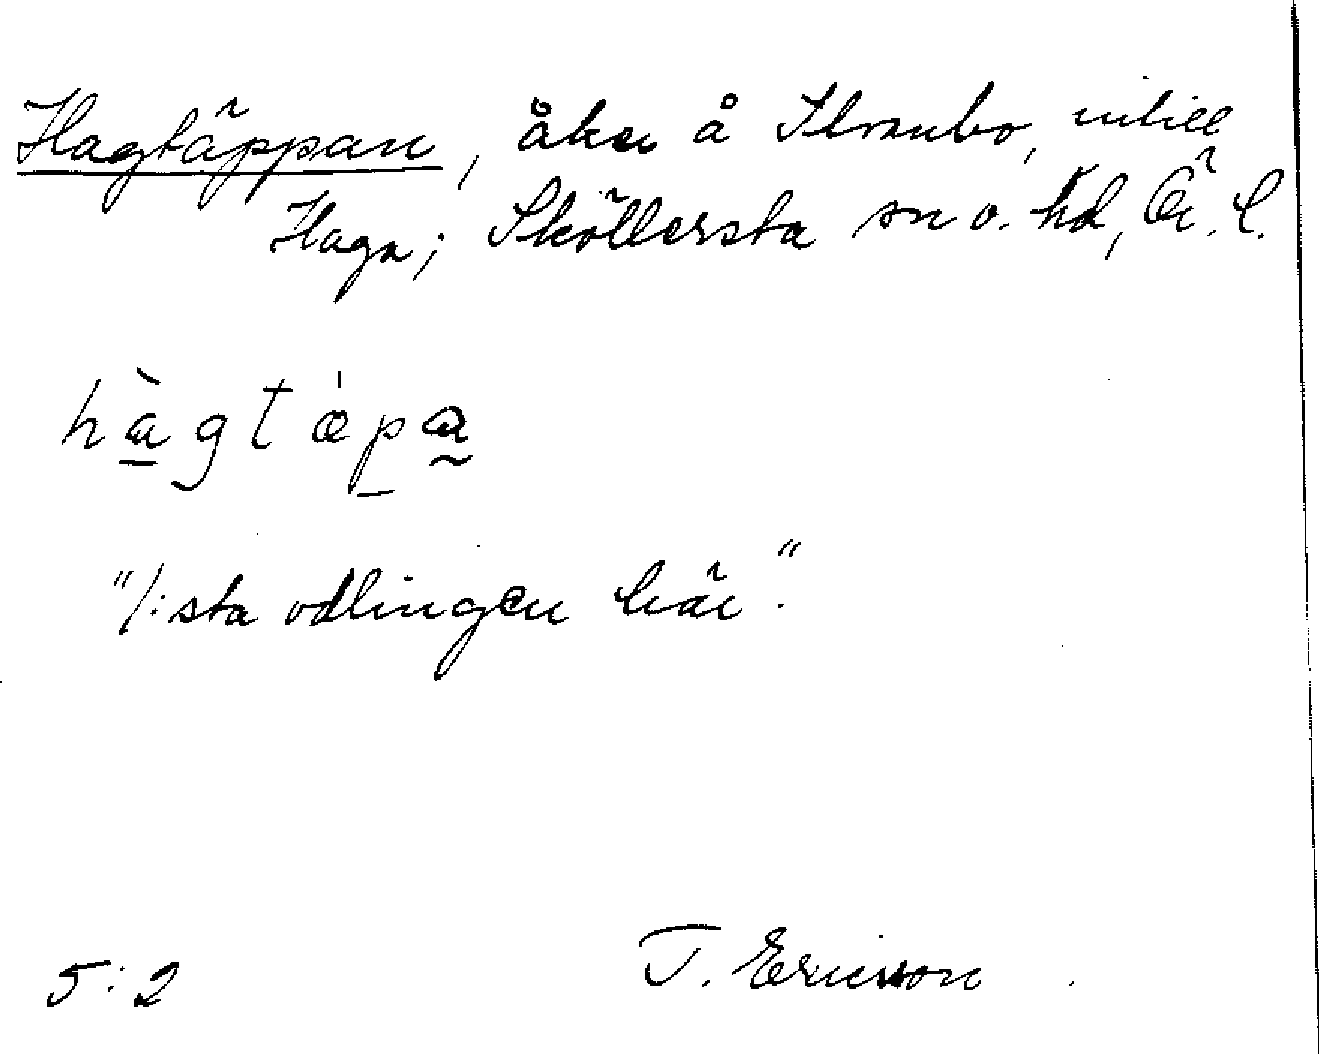 Hagtäppan, åker å Skrumbo, intill
Haga; Sköllersta sn o. hd, Ö. L.
hàgtæ̍pa
"1:sta odlingen här."
5:2 T. Ericsson